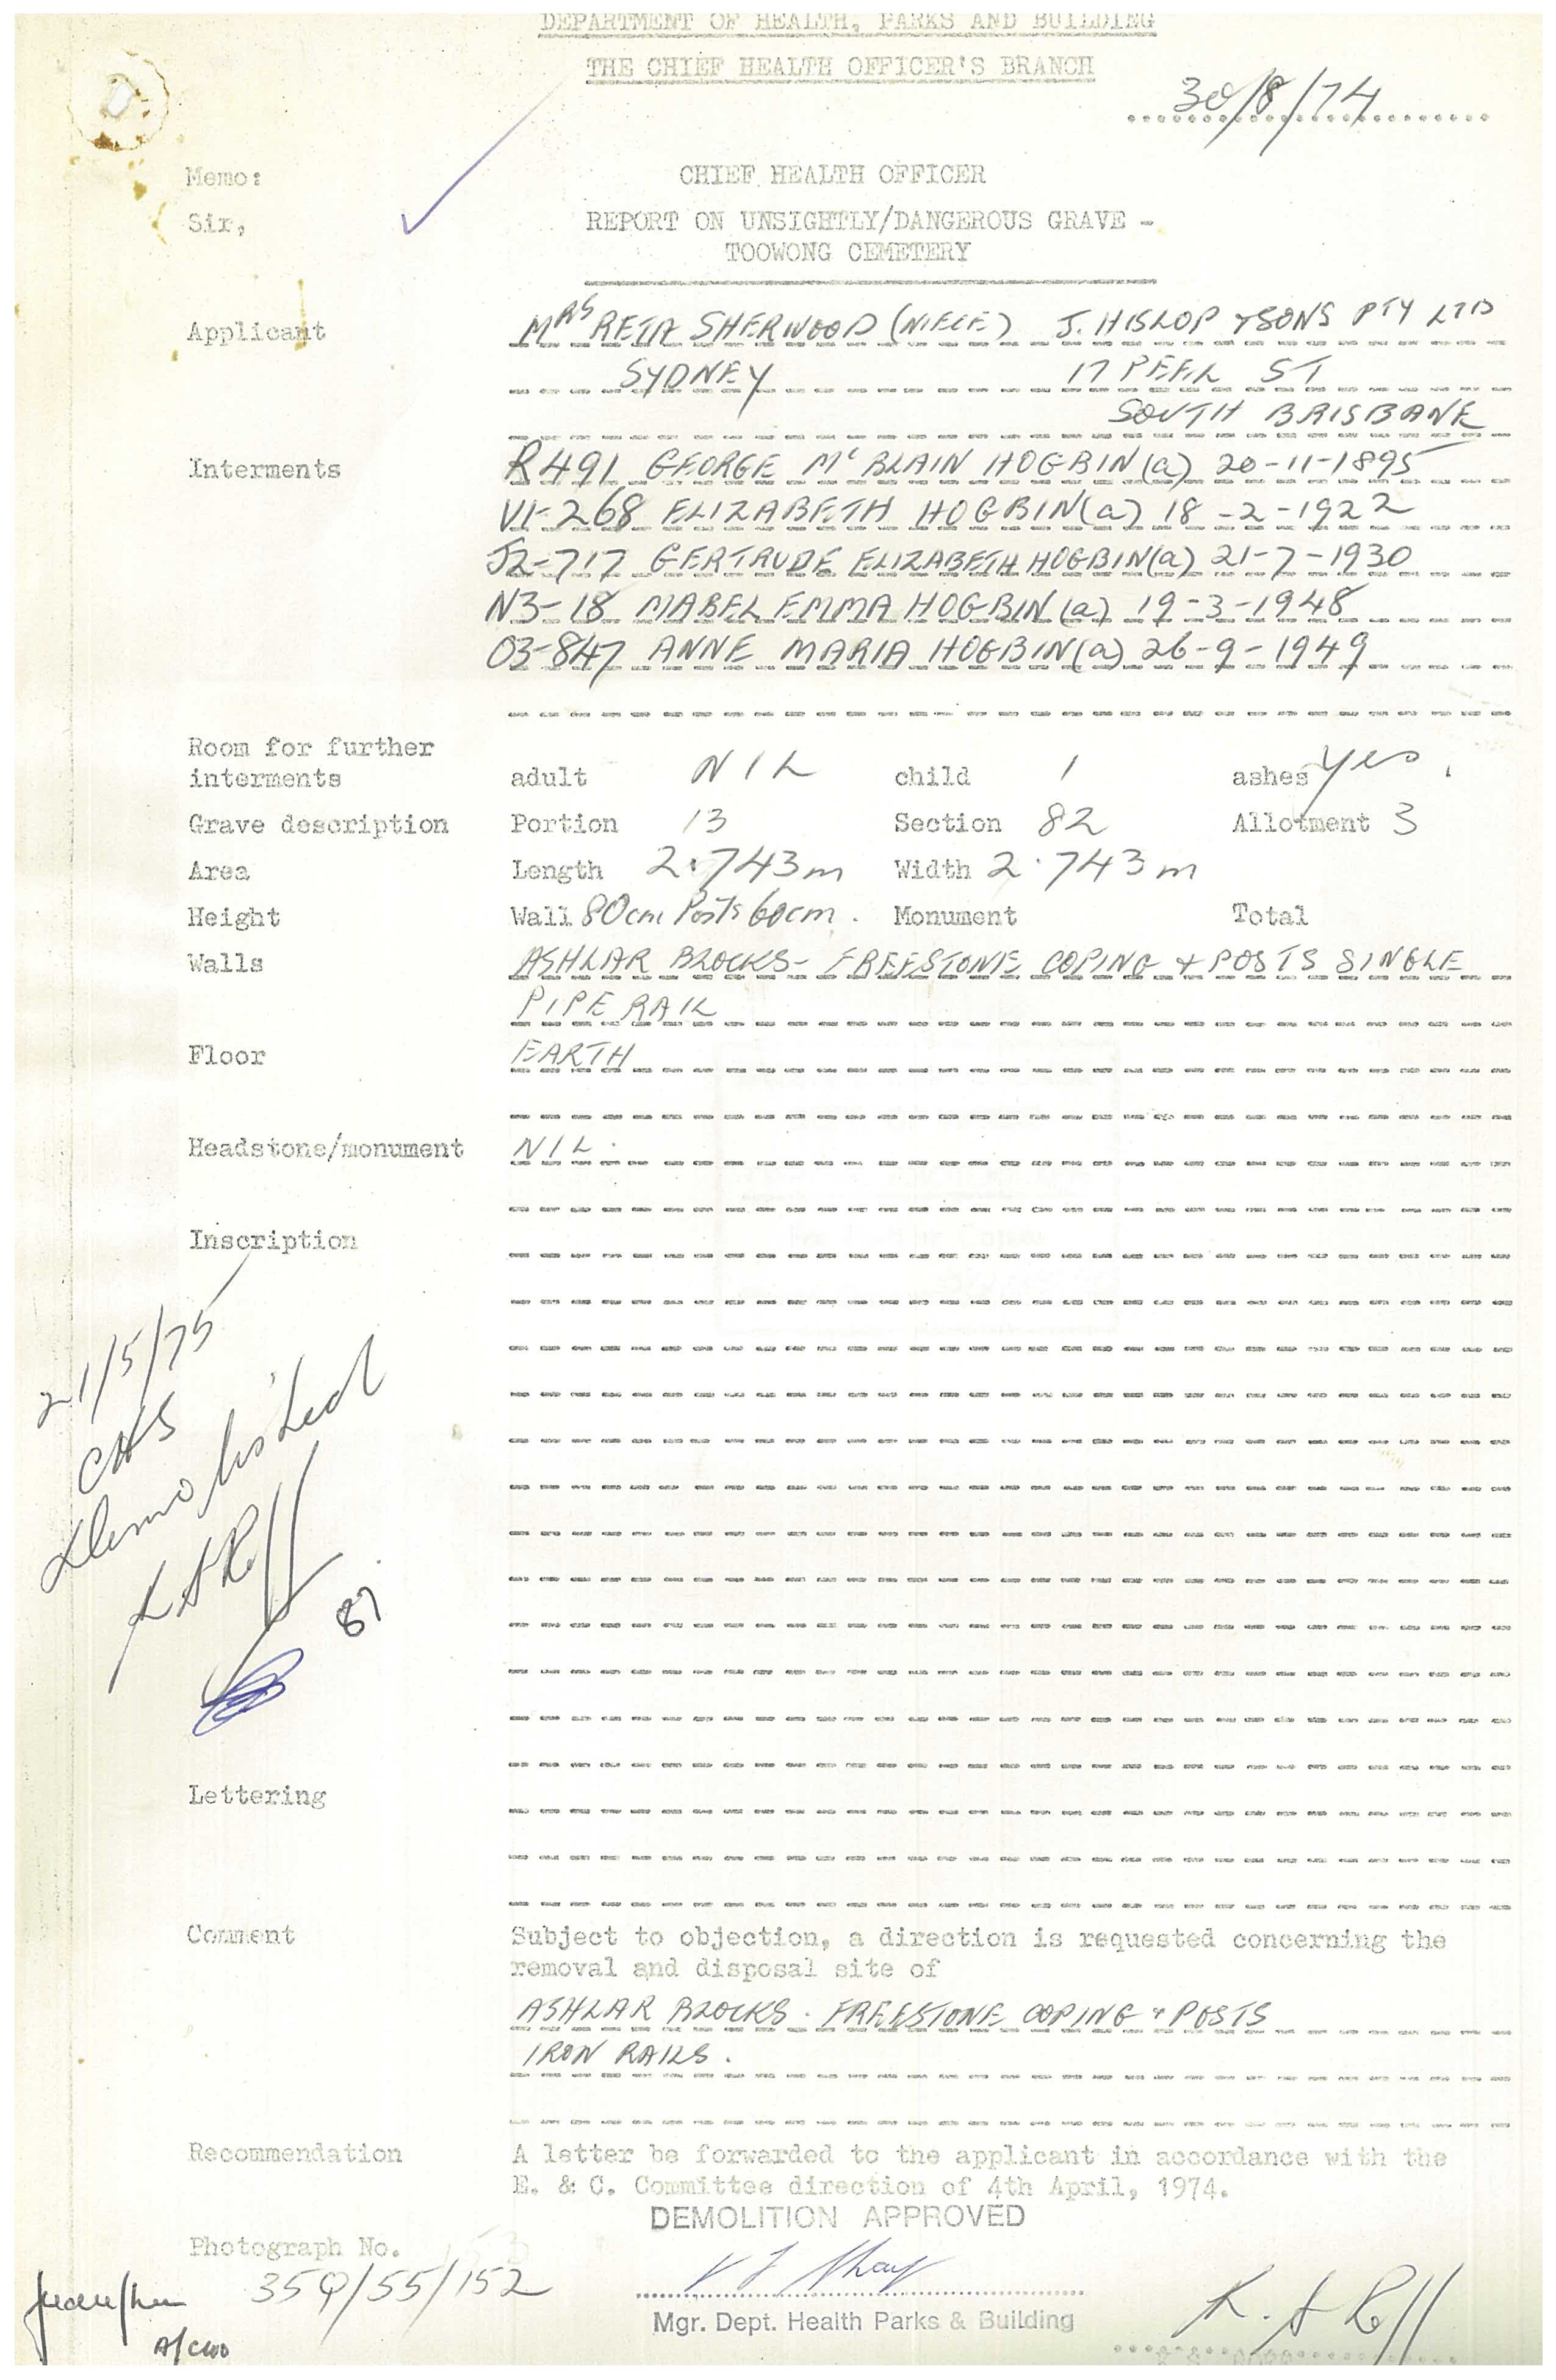 DEPARTMENT OF HEALTH, PARKS AND BUILDING
THE CHIEF HEALTH OFFICER'S BRANCH
30/8/74
Memo: CHIEF HEALTH OFFICER
Sir, REPORT ON UNSIGHTLY/DANGEROUS GRAVE -
TOOWONG CEMETERY
Applicant MRS RETA SHERWOOD (NIECE) J. HISLOP & SONS PTY LTD
SYDNEY 17 PEEL ST
SOUTH BRISBANE
Interments R491 GEORGE Mc BLAIN HOGBIN (a) 20-11-1895
V1-268 ELIZABETH HOGBIN (a) 18-2-1922
J2-717 GERTRUDE ELIZABETH HOGBIN (a) 21-7-1930
N3-18 MABEL EMMA HOGBIN (a) 19-3-1948
O3-847 ANNE MARIA HOGBIN (a) 26-9-1949
Room for further
interments adult NIL child 1 ashes yes.
Grave description Portion 13 Section 82 Allotment 3
Area Length 2.743m Width 2.743m
Height Wall 80cm Posts 60cm. Monument Total
Walls ASHLAR BLOCKS - FREESTONE COPING & POSTS SINGLE
PIPE RAIL
Floor EARTH
Headstone/monument NIL.
Inscription
21/5/75
CHS
Demolished
K A Roff
87
Lettering
Comment Subject to objection, a direction is requested concerning the
removal and disposal site of
ASHLAR BLOCKS. FREESTONE COPING & POSTS
IRON RAILS.
Recommendation A letter be forwarded to the applicant in accordance with the
E. & C. Committee direction of 4th April, 1974.
DEMOLITION APPROVED
Photograph No.
35Q/55/152
Mgr. Dept. Health Parks & Building
K. A Roff
A/CHO